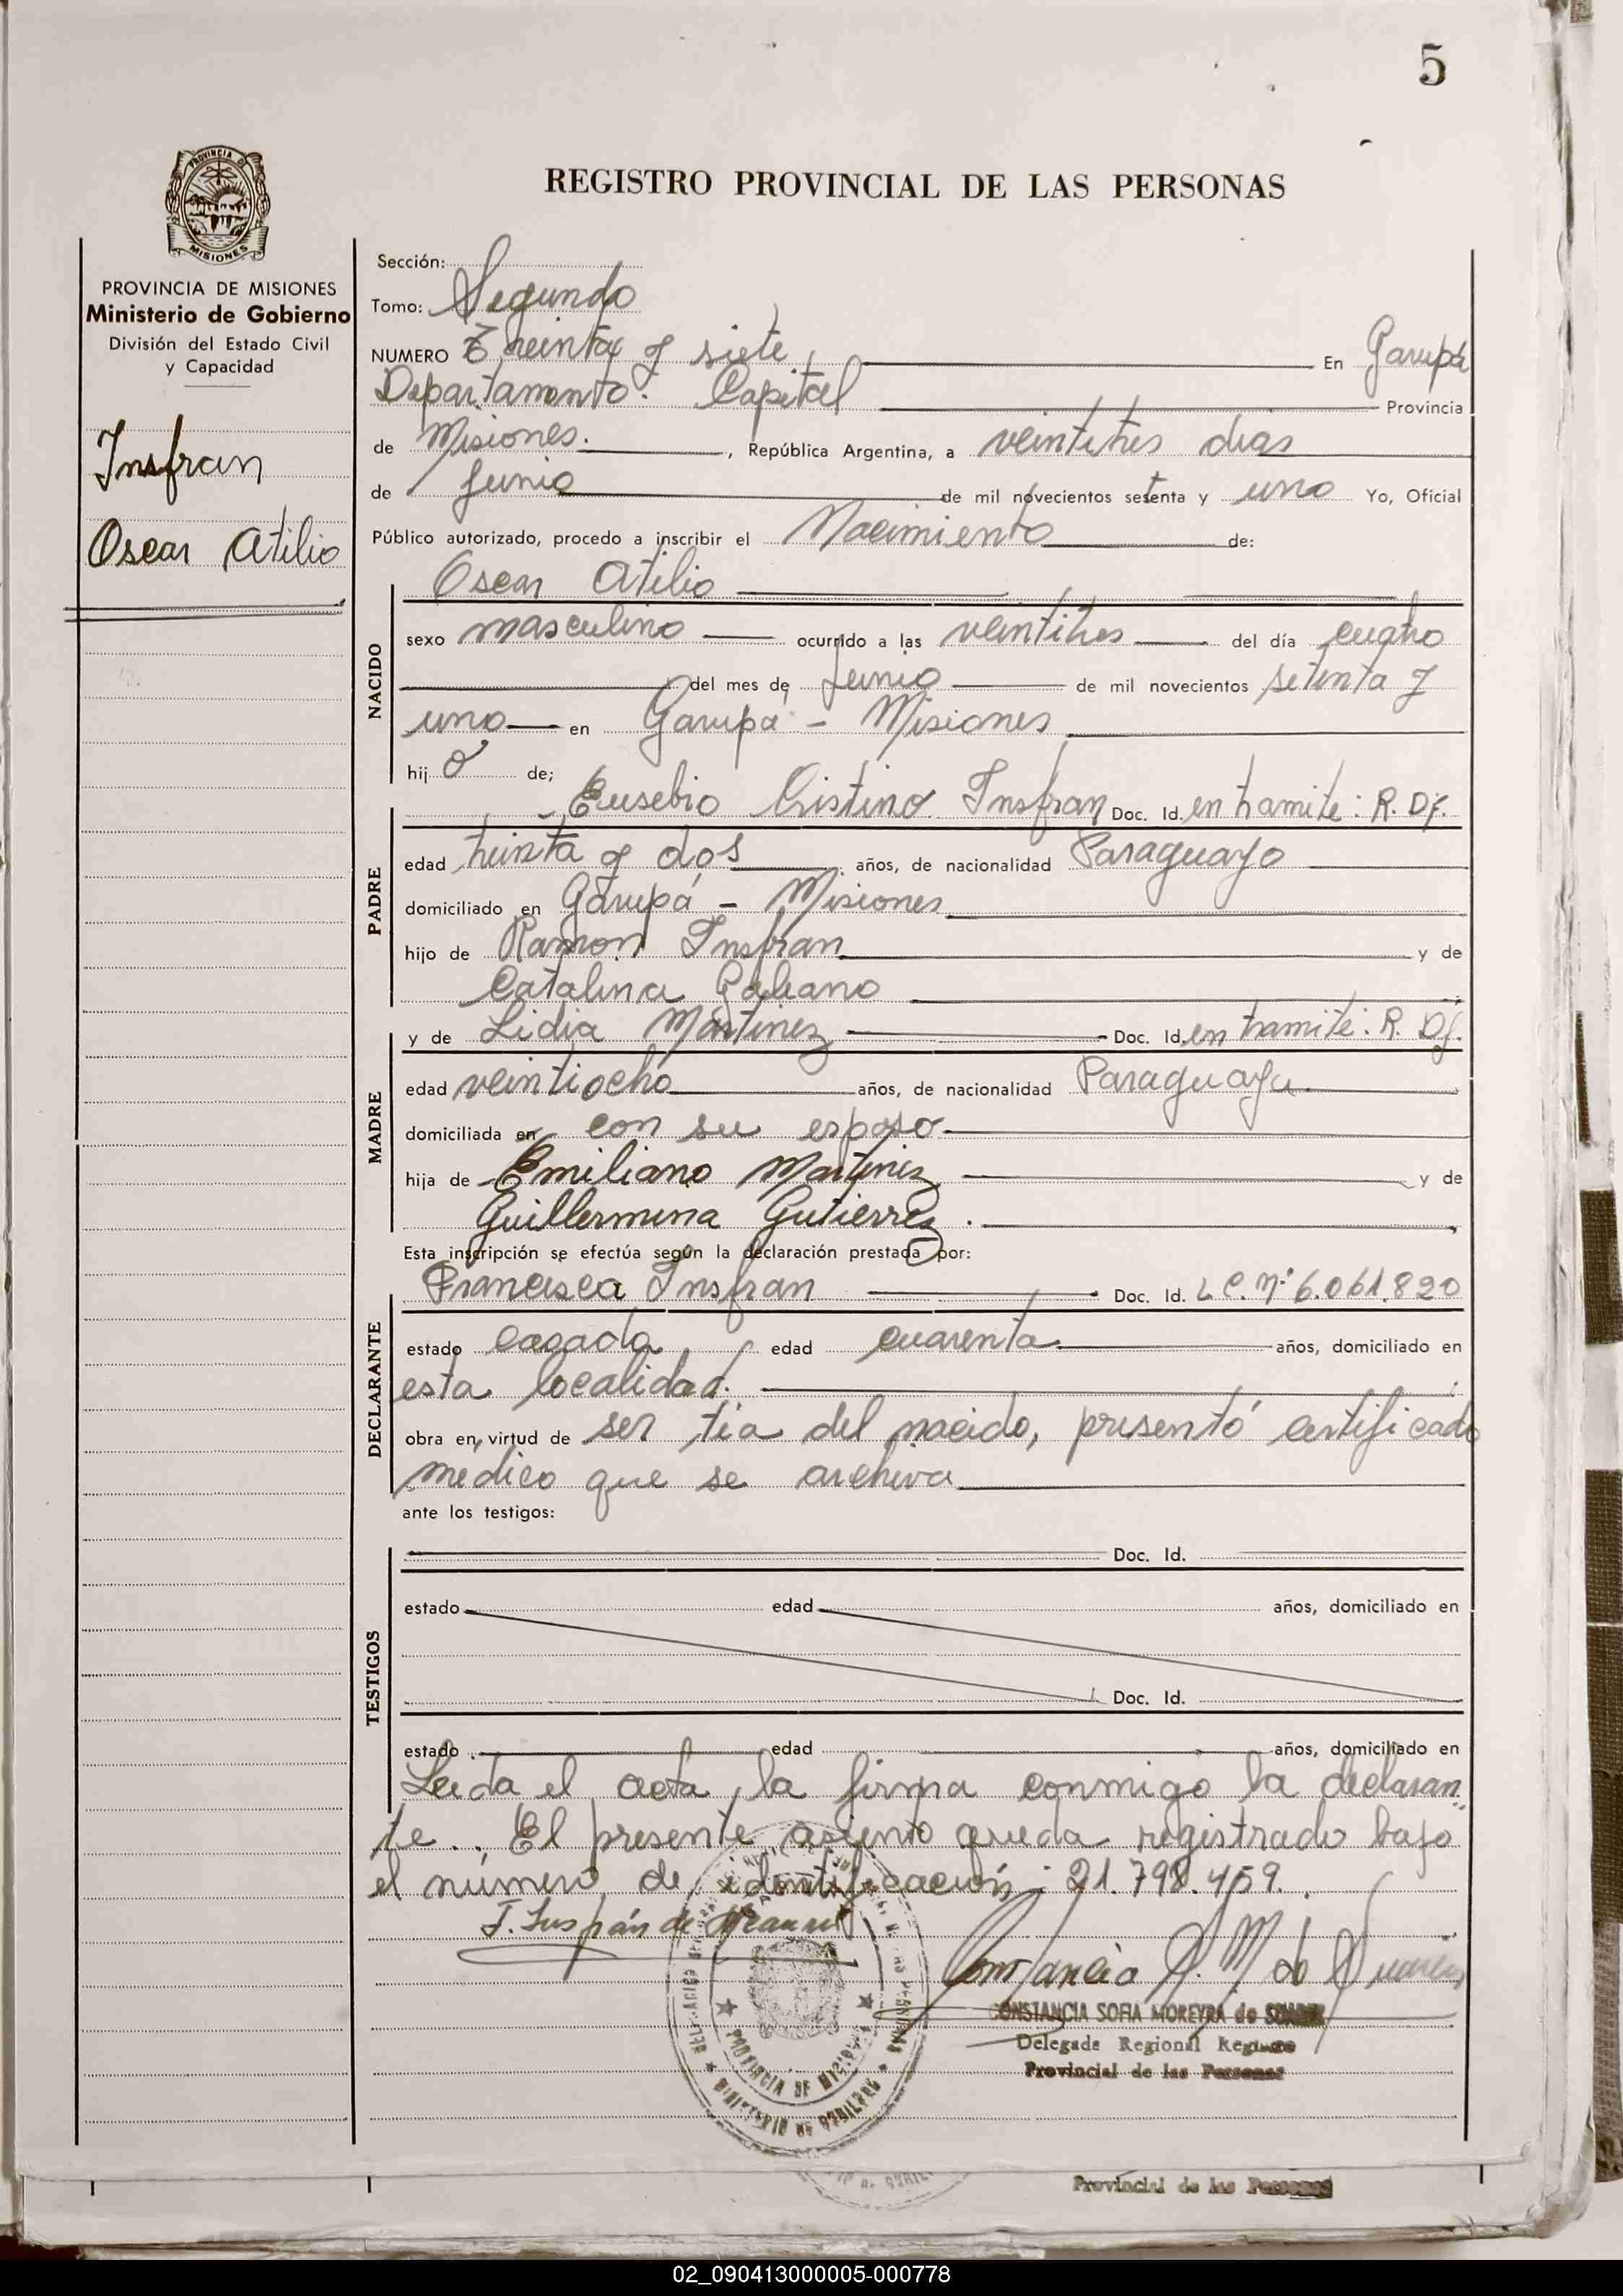 5
REGISTRO PROVINCIAL DE LAS PERSONAS
PROVINCIA DE
MISIONES
PROVINCIA DE MISIONES
Ministerio de Gobierno
División del Estado Civil
y Capacidad
Insfran
Oscar Atilio
Sección:
Tomo: Segundo
NUMERO Treinta y siete En Garupá
Departamento: Capital Provincia
de Misiones. , República Argentina, a veintitres dias
de Junio de mil novecientos setenta y uno Yo, Oficial
Público autorizado, procedo a inscribir el Nacimiento de:
Oscar Atilio
NACIDO
sexo masculino ocurrido a las veintitres del día cuatro
del mes de Junio de mil novecientos setenta y
uno en Garupá - Misiones
hij o de;
Eusebio Cristino Insfran Doc. Id. en tramite: R. Df.
PADRE
edad treinta y dos años, de nacionalidad Paraguayo
domiciliado en Garupá - Misiones
hijo de Ramon Insfran y de
Catalina Galeano
y de Lidia Martinez Doc. Id. en tramite: R. Df.
MADRE
edad veintiocho años, de nacionalidad Paraguaya.
domiciliada en con su esposo
hija de Emiliano Martinez y de
Guillermina Gutierrez.
Esta inscripción se efectúa según la declaración prestada por:
Francisca Insfran Doc. Id. L C. Nº 6.061.820
DECLARANTE
estado casada edad cuarenta años, domiciliado en
esta localidad.
obra en virtud de ser tia del nacido, presentó certificado
medico que se archiva
ante los testigos:
Doc. Id.
TESTIGOS
estado edad años, domiciliado en
Doc. Id.
estado edad años, domiciliado en
Leida el acta, la firma conmigo la declaran
te.. El presente asiento queda registrado bajo
el número de identificación: 21.798.459.
F. Insfrán de
Constancia S. M de Suarez
CONSTANCIA SOFIA MOREYRA de SUAREZ
Delegada Regional Registro
Provincial de las Personas
PROVINCIA DE MISIONES
MINISTERIO DE GOBIERNO
Provincial de las Personas
02_090413000005-000778